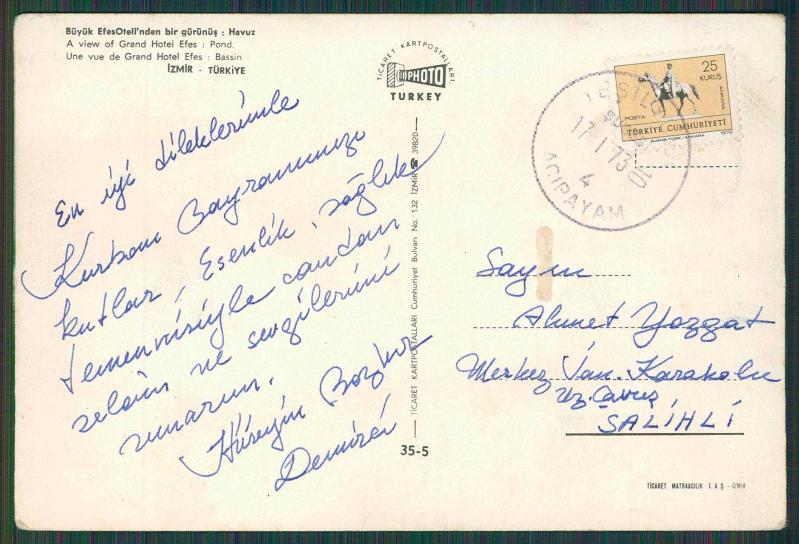 Büyük EfesOteli'nden bir gürünüş : Havuz
A view of Grand Hotel Efes : Pond.
Une vue de Grand Hotel Efes : Bassin
İZMİR - TÜRKİYE
TİCARET KARTPOSTALLARI.
PHOTO
TURKEY
25
KURUŞ
ANKARA
POSTA
TÜRKİYE CUMHURİYETİ
17 1 73 10
4
ACIPAYAM
En iyi dileklerimle
Kurban Bayramınızı
kutlar, Esenlik, sağlık
temennisiyle candan
selâm ve sevgilerimi
sunarım.
Hüseyin
Demirci
TİCARET KARTPOSTALLARI Cumhuriyet Bulvarı No: 132 İZMİR ☎ 39820
35-5
Sayın
Ahmet Yozgat
Merkez Jan. Karakolu
Uz. Çavuş
SALİHLİ
TİCARET MATBAACILIK T.A.Ş. - İZMİR